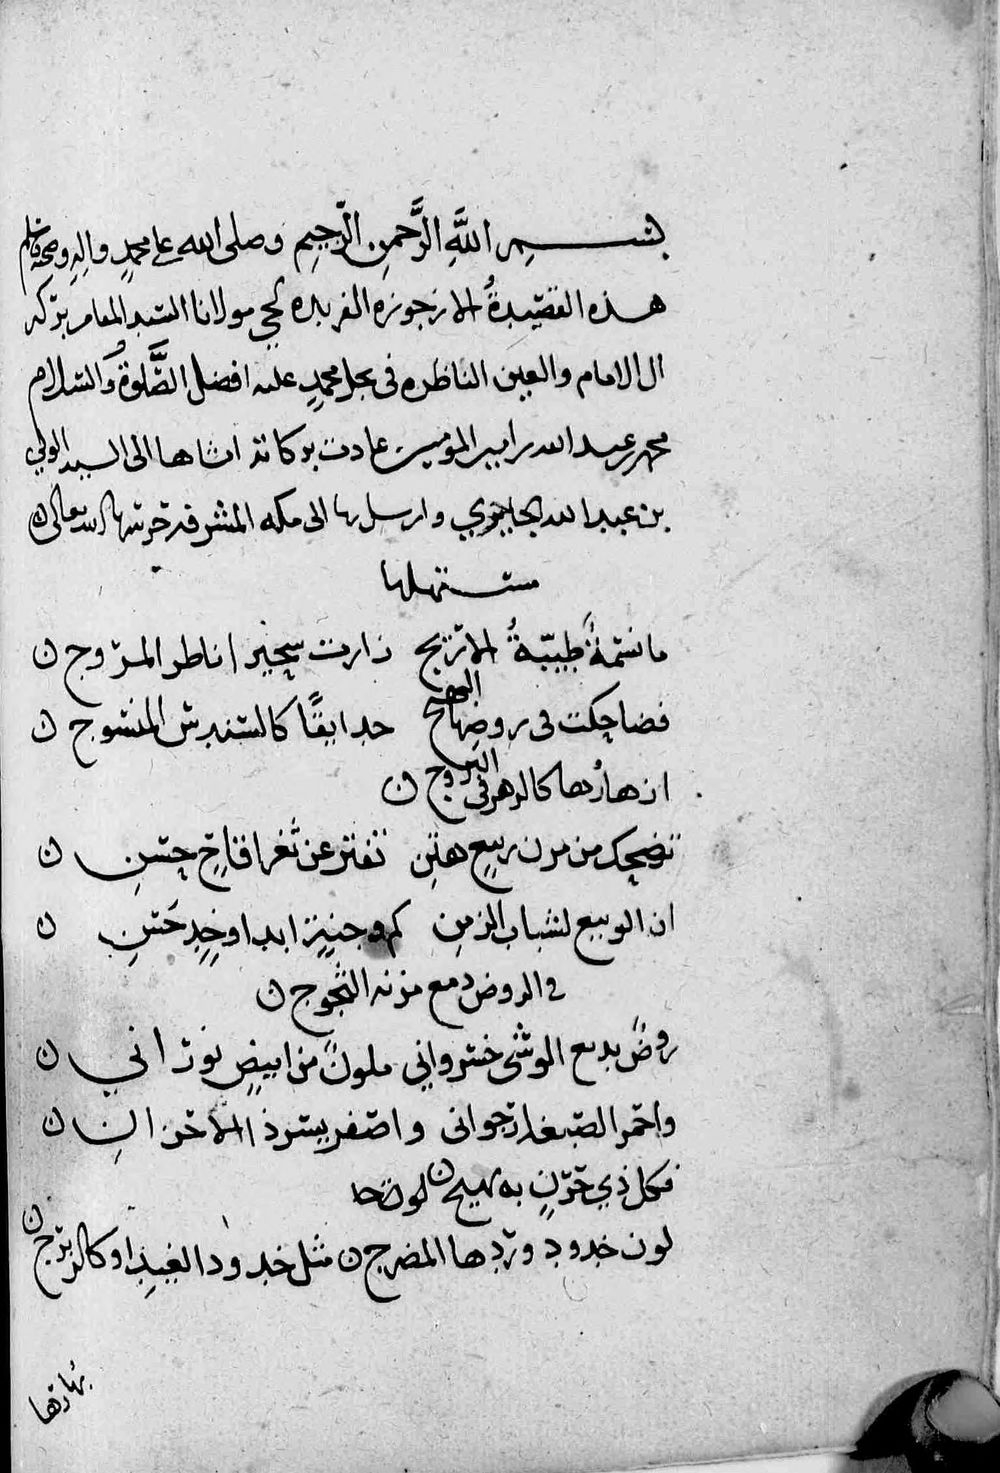 بسم اللَّهِ الرَّحمنِ الرَّحِيمِ وصلى الله على محمدٍ والهِ وصحبه وسلم
هذه القصيدةُ الارجوزه الفريده لحي مولانا السيد المقام بركه
ال الامام والعين الناظره في نجل محمدٍ عليه افضل الصَّلوة والسَّلام
محمد بن عبدالله بن امير المومنين عادت بركاته انشاها الى السيد الولي
بن عبدالله الحاجري وارسل بها الى مكه المشرفه حرسها الله تعالى ن
مستهلها
ما نسْمةٌ طيّبةُ الارِيج زارت سحيرا ناظر المروج ن
فضاحكت في روضها البهيج حدايقًا كالسندس المنسوج ن
ازهارُها كالزهر في البروج ن
تضحك من مزن ربيعٍ هتِنِ تفتر عن ثغر اقاحٍ حسَنِ ن
ان الربيع لشباب الزمنِ كم وجنةٍ ابدا وخدٍ حَسَنِ ن
في الروض دمع مزنه الثجوج ن
روضٌ بديع الوشي خسرواني ملونٌ من ابيضٍ نوراني ن
واحمر الصبغ ارجواني واصفر يسر ذا الاحزانِ ن
فكل ذي حزنٍ به بهيج ن
لون خدود وردها المضرج ن مثل خدود الغيد او كالزبرج ن
بهارها